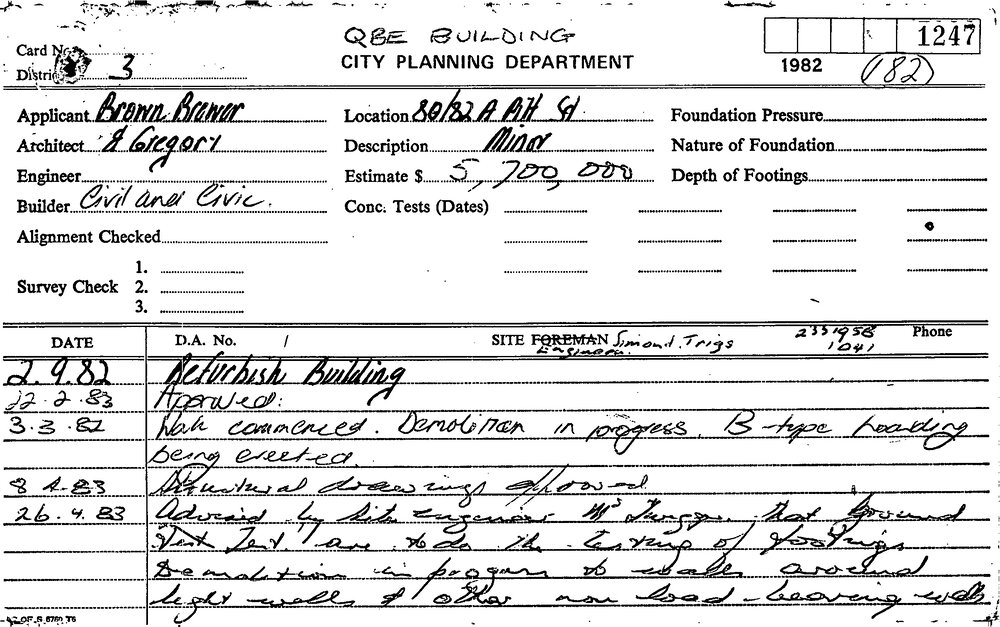 QBE BUILDING
1247
Card No.
CITY PLANNING DEPARTMENT
1982 (182)
District 3
Applicant Brown Brewer
Location 80/82 A Pitt St
Foundation Pressure
Architect & Gregory
Description Minor
Nature of Foundation
Engineer
Estimate $ 5,700,000
Depth of Footings
Builder Civil and Civic.
Conc. Tests (Dates)
Alignment Checked
1.
Survey Check 2.
3.
DATE D.A. No. SITE FOREMAN Engineer. Simond. Trigs 2331958 1041 Phone
2.9.82 Refurbish Building
22.2.83 Approved:
3.3.82 Work commenced. Demolition in progress. B-type hoarding
being erected.
8 4.83 Structural drawings approved
26.4.83 Advised by Site Engineer that Ground
Test. are to do the testing of footings
Demolition in progress to walls around
light wells & other non load-bearing walls